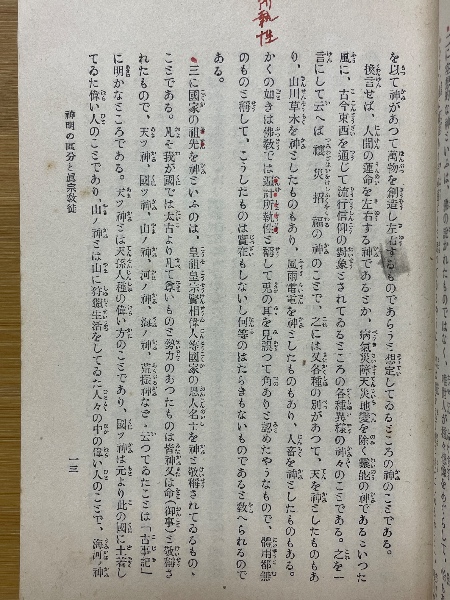 所執性
を以て神があつて萬物を創造し左右するものであらうと想定してゐるところの神のことである。
換言せば、人間の運命を左右する神であるとか、病氣災障天災地變を除く靈能の神であるといつた
風に、古今東西を通じて流行信仰の對象とされてゐるところの各種異樣の神々のことである。之を一
言にして云へば禳災招福の神のことで、之には又各種の別があつて、天を神としたものもあ
り、山川草木を神としたものもあり、風雨雷電を神としたものもあり、人畜を神としたものもある。
かくの如きは佛教では遍計所執性と稱して兎の耳を見誤つて角ありと認めたやうなもので、體用都無
のものと稱して、こうしたものは實在もしないし何等のはたらきもないものであると敎へられるので
ある。
三に國家の祖先を神といふのは、皇祖皇宗賢相偉人等國家の恩人名士を神と敬稱されてゐるもの
ことである。凡そ我が國では太古より凡て尊いもの勢力のあつたものは皆神又は命(御事)と敬稱さ
れたもので、天ツ神、國ツ神、山ノ神、河ノ神、海ノ神、荒振神など云つてゐたことは「古事記」
に明かなところである。天ツ神とは天孫人種の偉い方のことであり、國ツ神は元より此の國に土着し
てゐた偉い人のことであり、山ノ神とは山に狩獵生活をしてゐた人々の中の偉い人のことで、海河ノ神
神明の區分と眞宗敎徒
一三